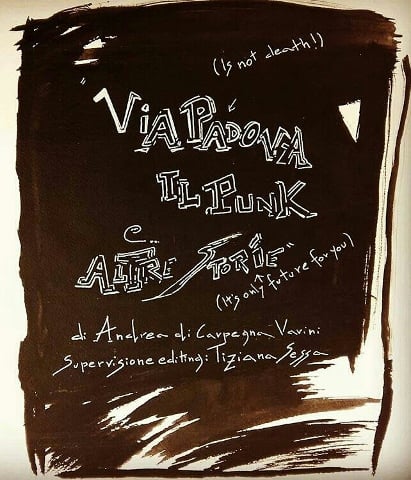 (Is not death!)
"Via Padova
il Punk
e...
Altre Storie"
(It's only future for you)
di Andrea di Carpegna Varini
Supervisione editing: Tiziana Sessa